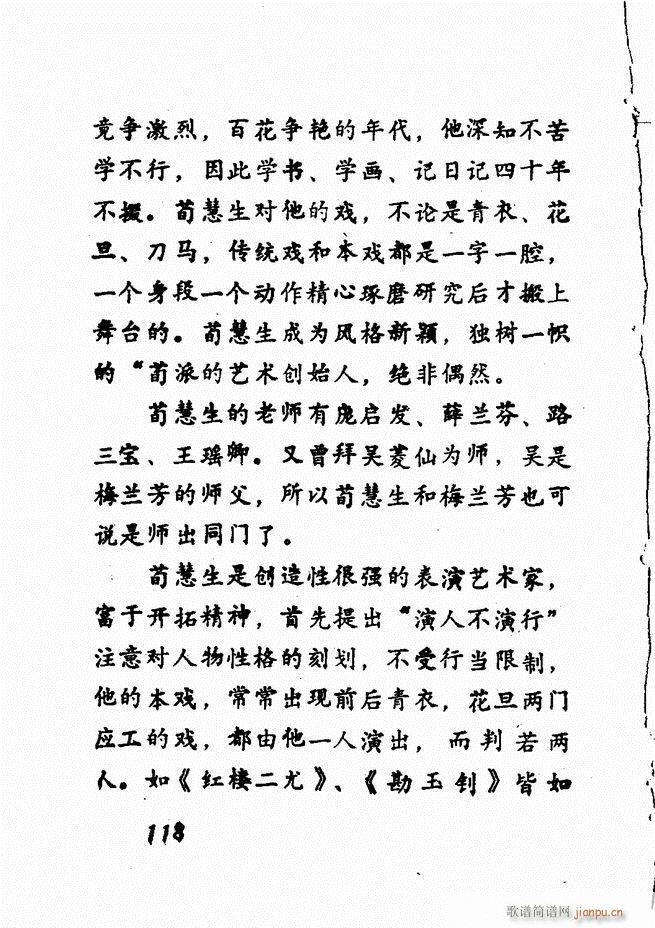 竞争激烈，百花争艳的年代，他深知不苦
学不行，因此学书、学画、记日记四十年
不掇。荀慧生对他的戏，不论是青衣、花
旦、刀马，传统戏和本戏都是一字一腔，
一个身段一个动作精心琢磨研究后才搬上
舞台的。荀慧生成为风格新颖，独树一帜
的“荀派的艺术创始人，绝非偶然。
荀慧生的老师有庞启发、薛兰芬、路
三宝、王瑶卿。又曾拜吴菱仙为师，吴是
梅兰芳的师父，所以荀慧生和梅兰芳也可
说是师出同门了。
荀慧生是创造性很强的表演艺术家，
富于开拓精神，首先提出“演人不演行”
注意对人物性格的刻划，不受行当限制，
他的本戏，常常出现前后青衣，花旦两门
应工的戏，都由他一人演出，而判若两
人。如《红楼二尤》、《勘玉钏》皆如
118
歌谱简谱网 jianpu.cn